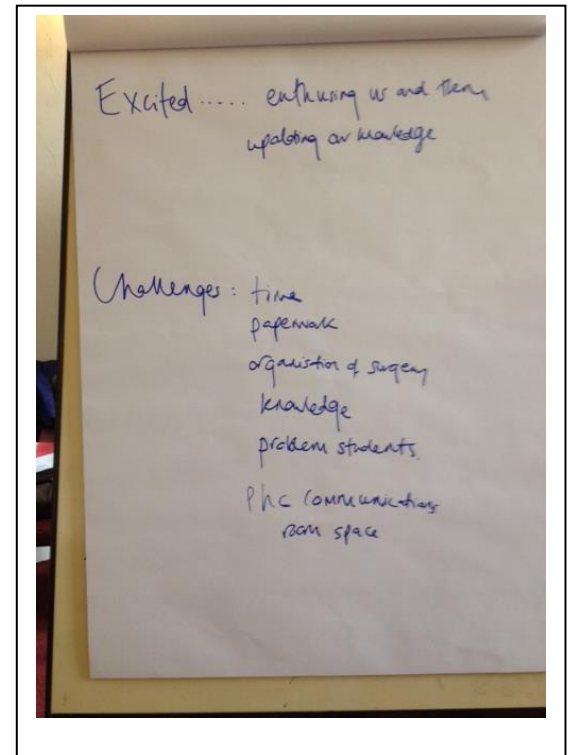 Excited ..... enthusing us and them
updating our knowledge
Challenges : time
paperwork
organistion of surgery
knowledge
problem students.
Phc communications
room space